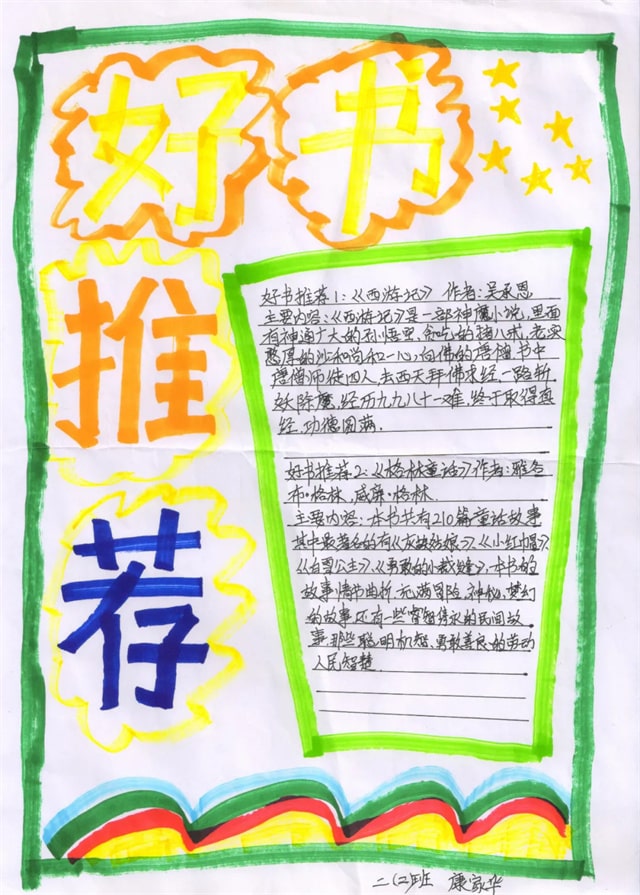 好书
推
荐
好书推荐1:《西游记》 作者:吴承恩
主要内容:《西游记》是一部神魔小说,里面
有神通广大的孙悟空、贪吃的猪八戒、老实
憨厚的沙和尚和一心向佛的唐僧,书中
唐僧师徒四人,去西天拜佛求经,一路斩
妖除魔,经历九九八十一难,终于取得真
经,功德圆满.
好书推荐2:《格林童话》作者:雅各
布·格林,威廉·格林.
主要内容:本书共有210篇童话故事
其中最著名的有《灰姑娘》、《小红帽》、
《白雪公主》、《勇敢的小裁缝》.本书的
故事情节曲折,充满冒险、神秘、梦幻
的故事,还有一些睿智隽永的民间故
事,那些聪明机智、勇敢善良的劳动
人民智慧.
二(2)班 康家华